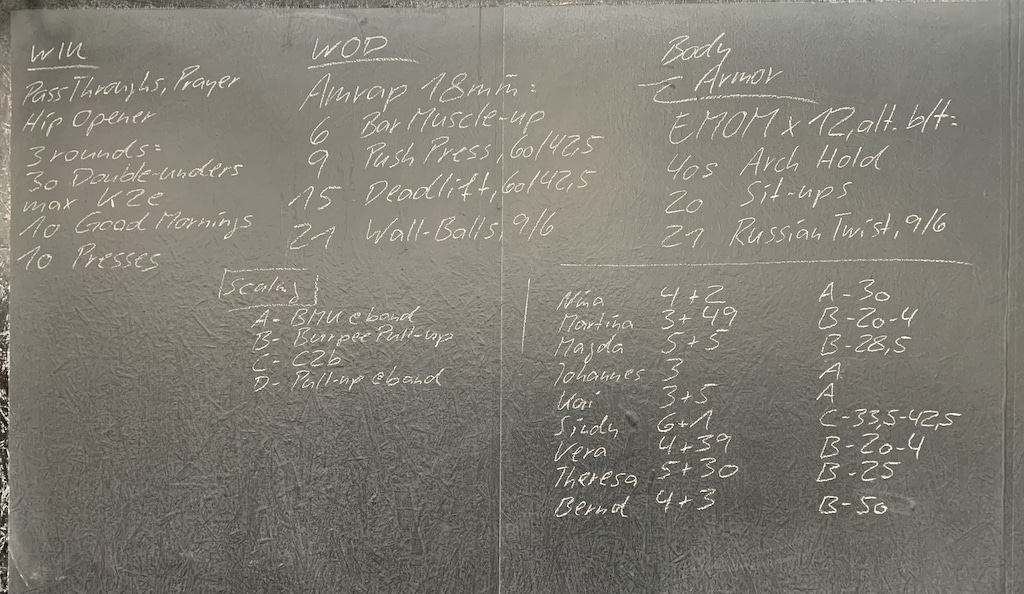 WU
Pass Throughs, Prayer
Hip Opener
3 rounds:
30 Double-unders
max K2e
10 Good Mornings
10 Presses
WOD
Amrap 18min:
6 Bar Muscle-up
9 Push Press, 60/42,5
15 Deadlift, 60/42,5
21 Wall-Balls, 9/6
Scaling
A- BMU c band
B- Burpee Pull-up
C- C2b
D- Pull-up c band
Body
Armor
EMOM x 12, alt. b/t:
40s Arch Hold
20 Sit-ups
21 Russian Twist, 9/6
Nina 4+2 A-30
Martina 3+49 B-20-4
Magda 5+5 B-28,5
Johannes 3 A
Kai 3+5 A
Sindy 6+1 C-33,5-42,5
Vera 4+39 B-20-4
Theresa 5+30 B-25
Bernd 4+3 B-50